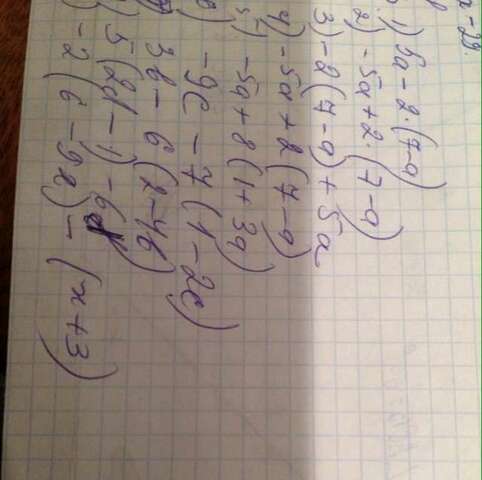 x - 29.
1) 5a - 2·(7-a)
2) -5a + 2·(7-a)
3) -2(7-a) + 5a
4) -5a + 2(7-a)
5) -5a + 8(1+3a)
-9c - 7(1-2c)
3b - 6(2-4b)
5(2d-1) - 6d
-2(6-9x) - (x+3)